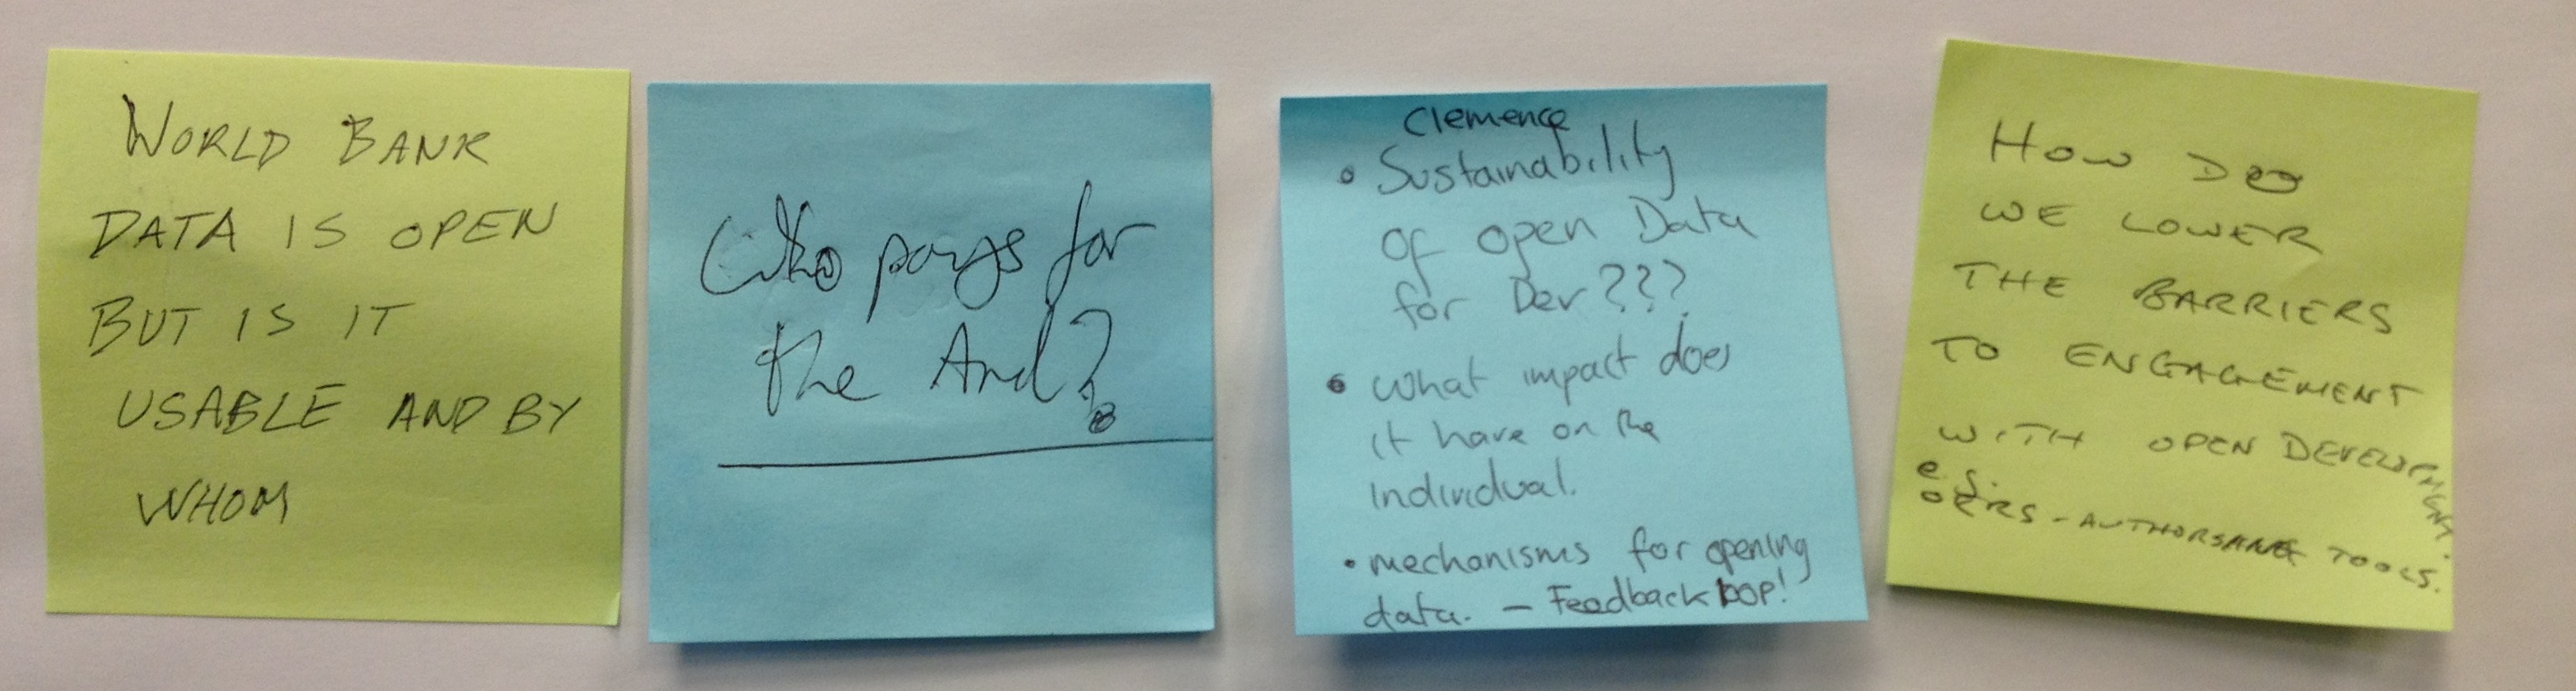 WORLD BANK
DATA IS OPEN
BUT IS IT
USABLE AND BY
WHOM
Who pays for
the And?
Clemence
• Sustainability
of open Data
for Dev???
• What impact does
it have on the
individual.
• mechanisms for opening
data. – Feedback loop!
HOW DO
WE LOWER
THE BARRIERS
TO ENGAGEMENT
WITH OPEN DEVELOPMENT.
e.g.
OERS - AUTHORSHIP TOOLS.